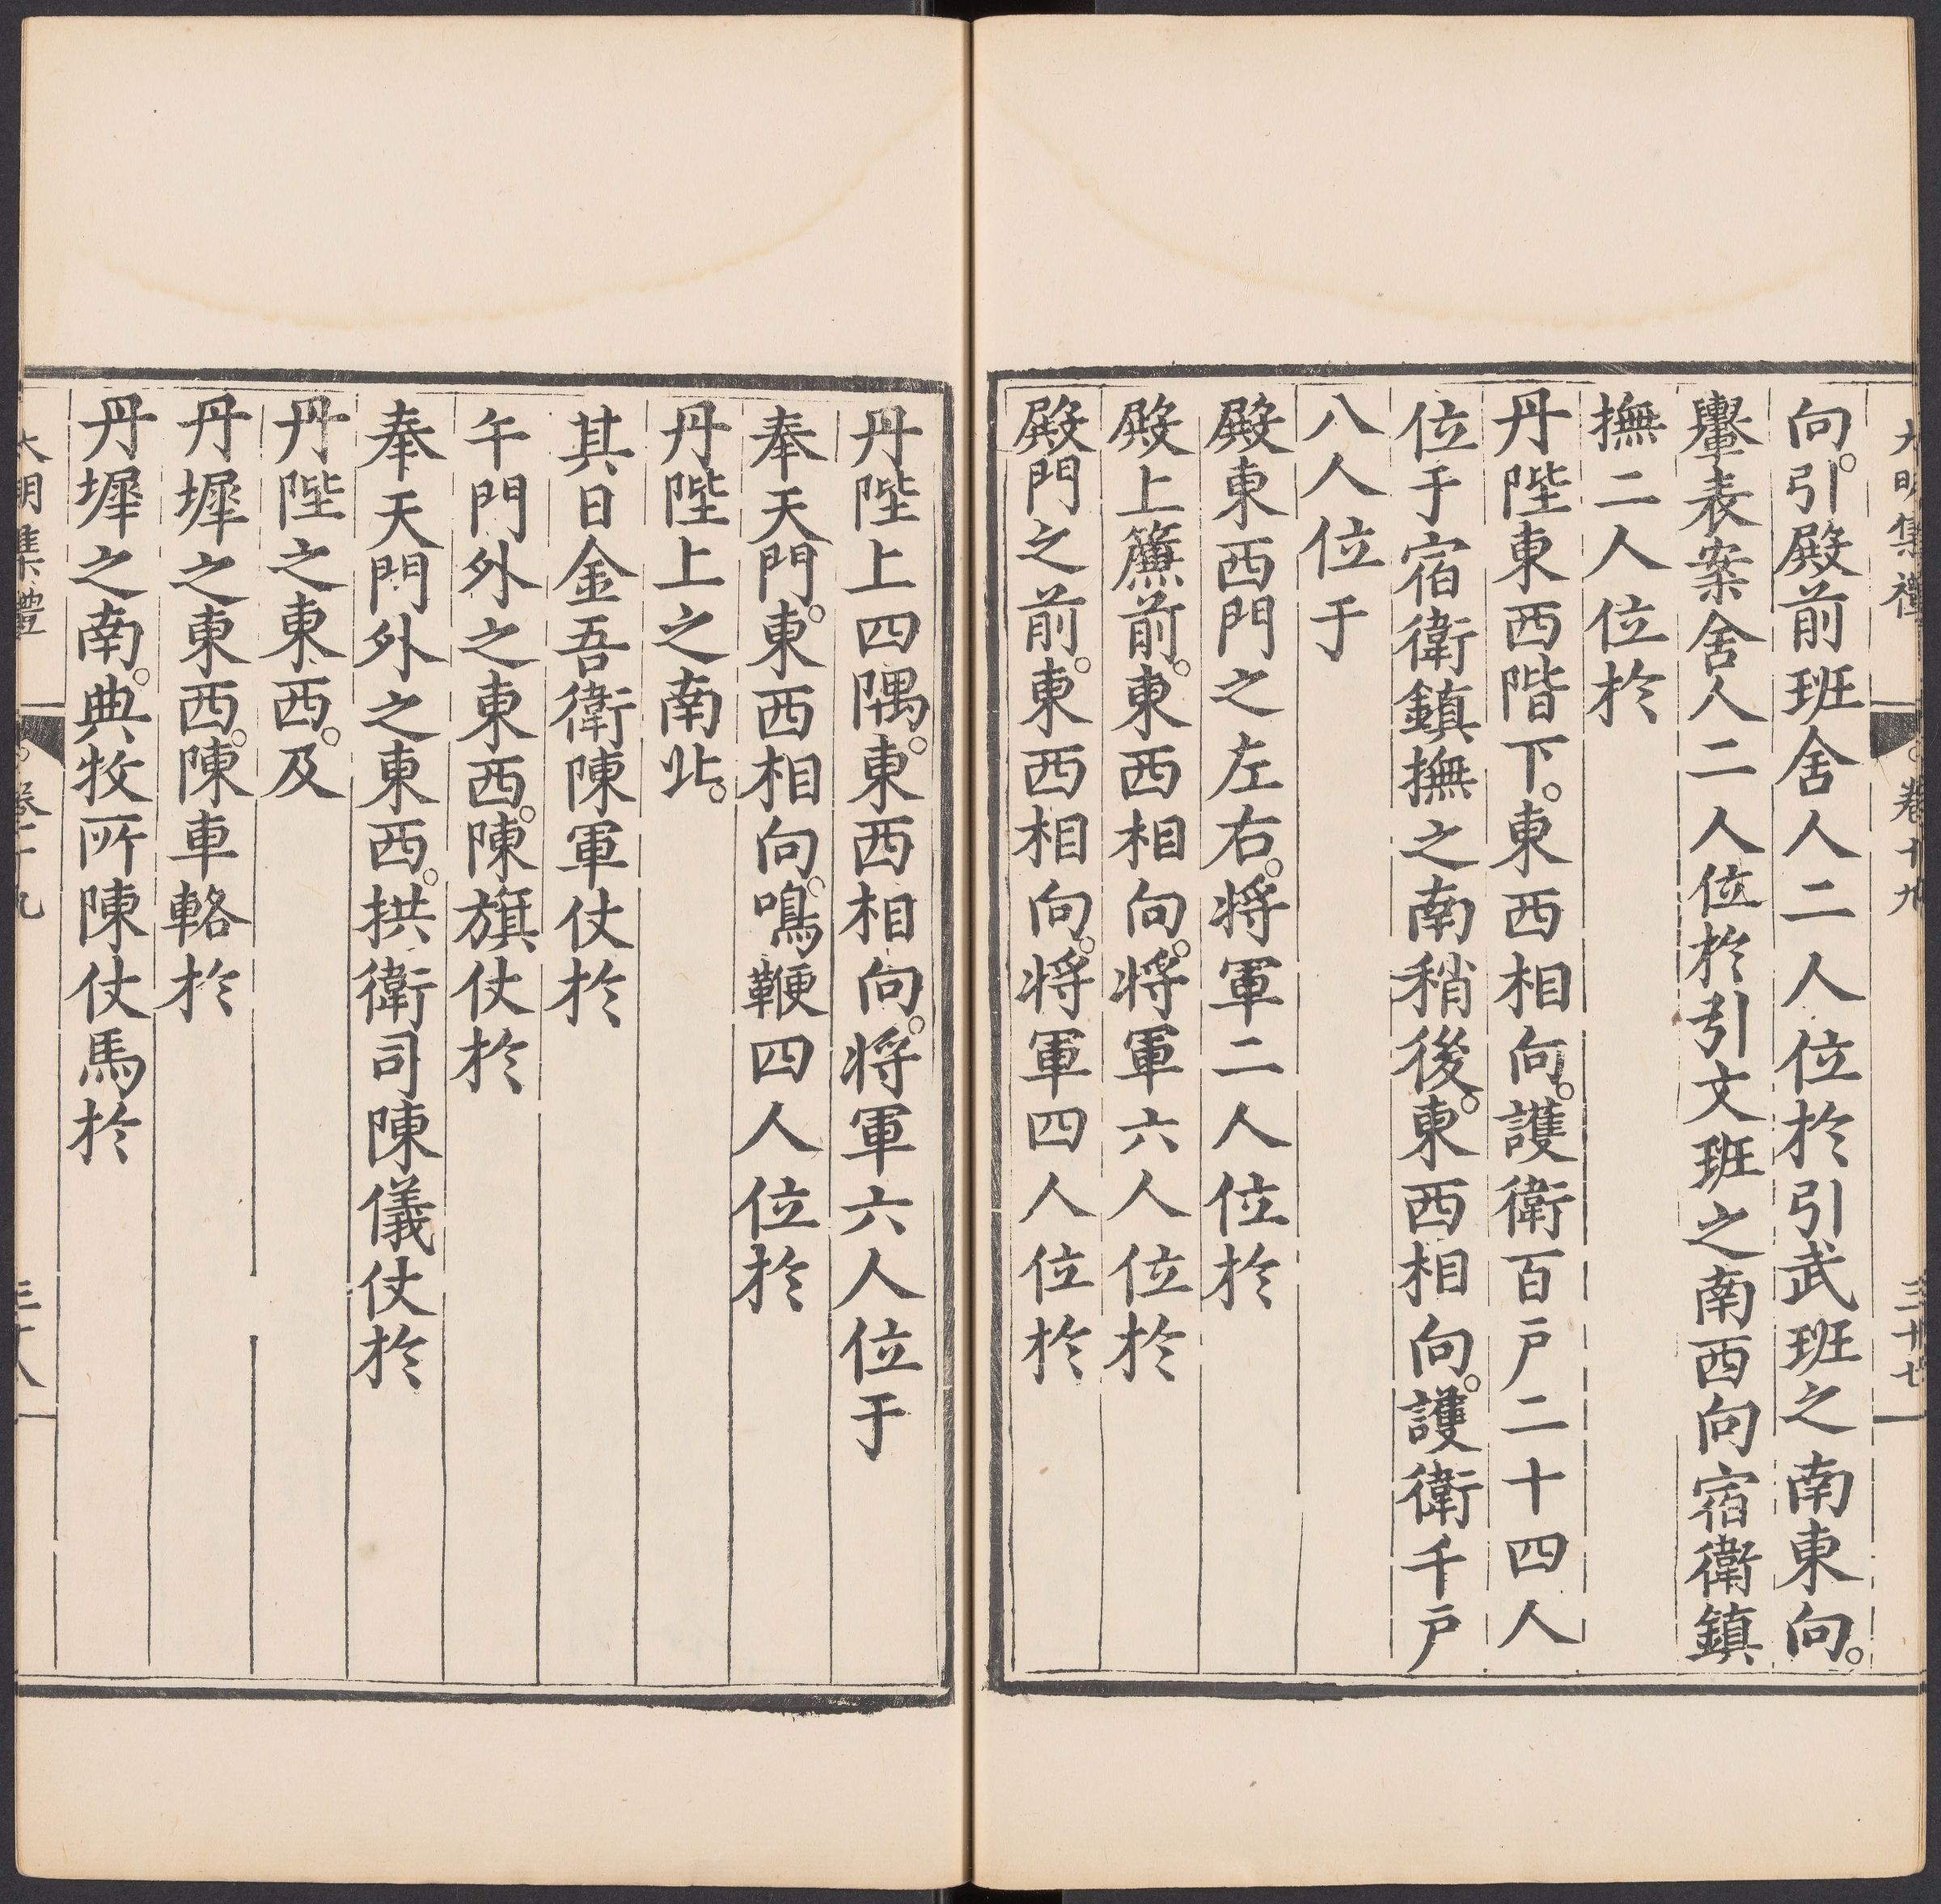 大明集禮 卷十九 三十七
向。引殿前班舍人二人位於引武班之南東向。
轝表案舍人二人位於引文班之南西向宿衛鎮
撫二人位於
丹陛東西階下。東西相向。護衛百戶二十四人
位于宿衛鎮撫之南稍後。東西相向。護衛千戶
八人位于
殿東西門之左右。将軍二人位於
殿上簾前。東西相向。将軍六人位於
殿門之前。東西相向。将軍四人位於
丹陛上四隅。東西相向。将軍六人位于
奉天門。東西相向。鳴鞭四人位於
丹陛上之南北。
其日金吾衛陳軍仗於
午門外之東西。陳旗仗於
奉天門外之東西。拱衛司陳儀仗於
丹陛之東西。及
丹墀之東西。陳車輅於
丹墀之南。典牧所陳仗馬於
大明集禮 。卷十九 三十八